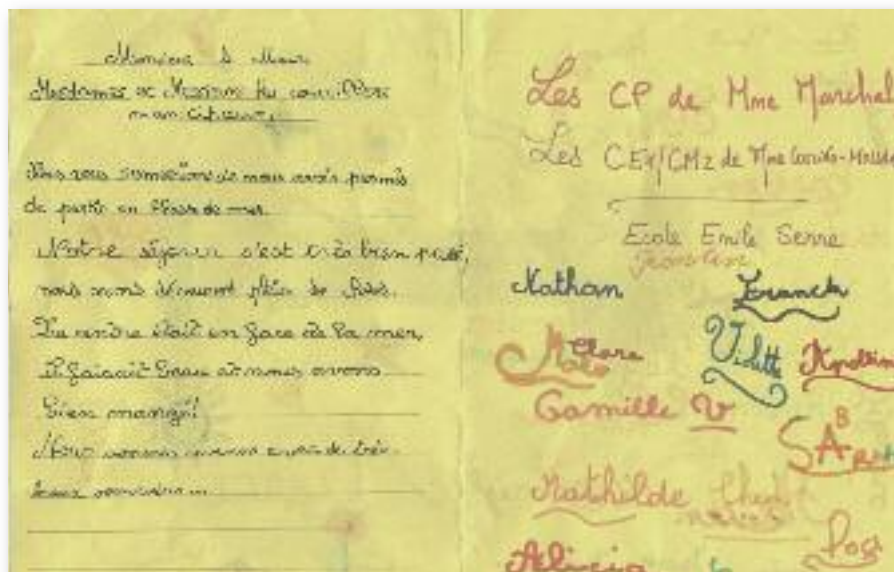 Monsieur le Maire
Mesdames et Messieurs les conseillers
municipaux,
Nous vous remercions de nous avoir permis
de partir en classe de mer.
Notre séjour s'est très bien passé,
nous avons découvert plein de choses.
Le centre était en face de la mer,
Il faisait beau et nous avons
bien mangé!
Nous sommes revenus avec de très
beaux souvenirs...
Les CP de Mme Marchal
Les CE1/CM2 de Mme
Ecole Emile Serre
Nathan
Franck
Clara
Violette
Camille V
Mathilde
Alicia